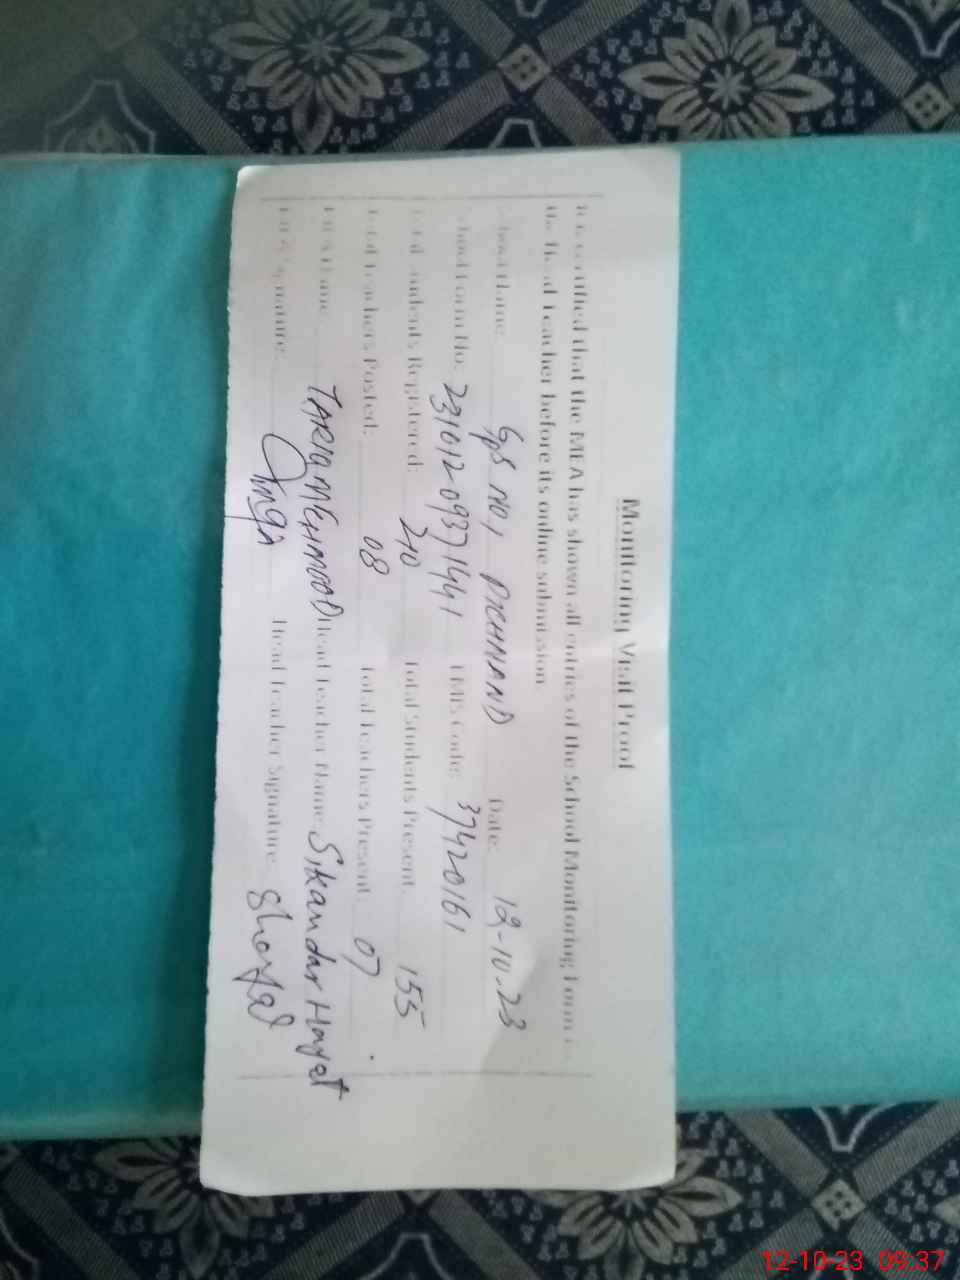 Monitoring Visit Proof
It is certified that the MEA has shown all entries of the School Monitoring Form to
the Head Teacher before its online submission.
School Name: GPS NO1 Date: 12-10-23
School Form No: 231012-09371441 EMIS Code: 37420161
Total Students Registered: 210 Total Students Present: 155
Total Teachers Posted: 08 Total Teachers Present: 07
MEA Name: TARIQ MEHMOOD Head Teacher Name: Sikandar Hayat
MEA Signature: Head Teacher Signature:
12-10-23 09:37